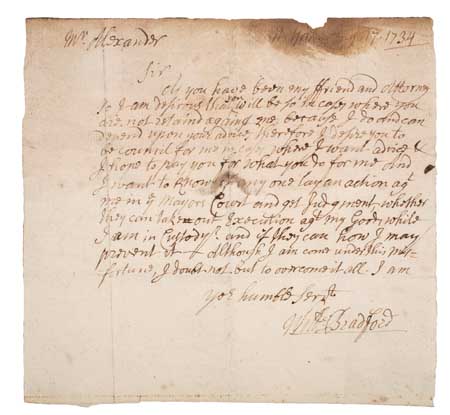 Mr. Alexander 1734
Sir
As you have been my ffriend and Attorney
so I am desirous that you will be so in cases where you
are not retain'd against me, because I do and can
depend upon your advice, therefore I desire you to
be council for me in cases where I want advice &
I hope to pay you for what you do for me And
I want to know if any one lay an action agt
me in ye Mayors Court and get Judgment whether
they can take out Execution agt my Goods while
I am in Custody? and if they can how I may
prevent it although I am come under this mis-
fortune, I doubt not but to overcome it all. I am
Yor humble Servt
Will. Bradford